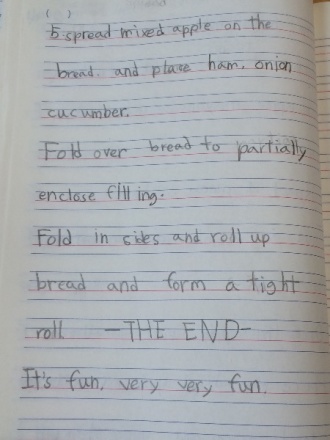 ( )
5 spread mixed apple on the
bread. and place ham. onion
cucumber.
Fold over bread to partially
enclose filling.
Fold in sides and roll up
bread and form a tight
roll -THE END-
It's fun. very very fun.